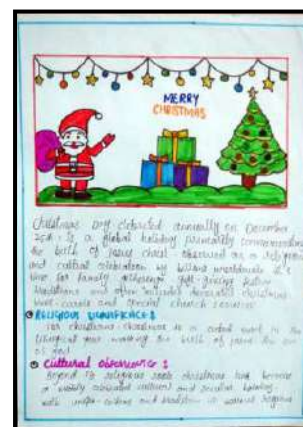 MERRY
CHRISTMAS
Christmas Day celebrated annually on December
25th is a global holiday primarily commemorating
the birth of Jesus Christ observed as a religious
and cultural celebration by billions worldwide it's
time for family gatherings gift-giving festive
traditions and often includes decorated christmas
trees carols and special church services
RELIGIOUS SIGNIFICANCE :
For christians christmas is a event in the
liturgical year marking the birth of Jesus the son
of God
Cultural observance :
Beyond its religious roots christmas has become
a widely celebrated cultural and secular holiday
with unique customs and traditions in various regions